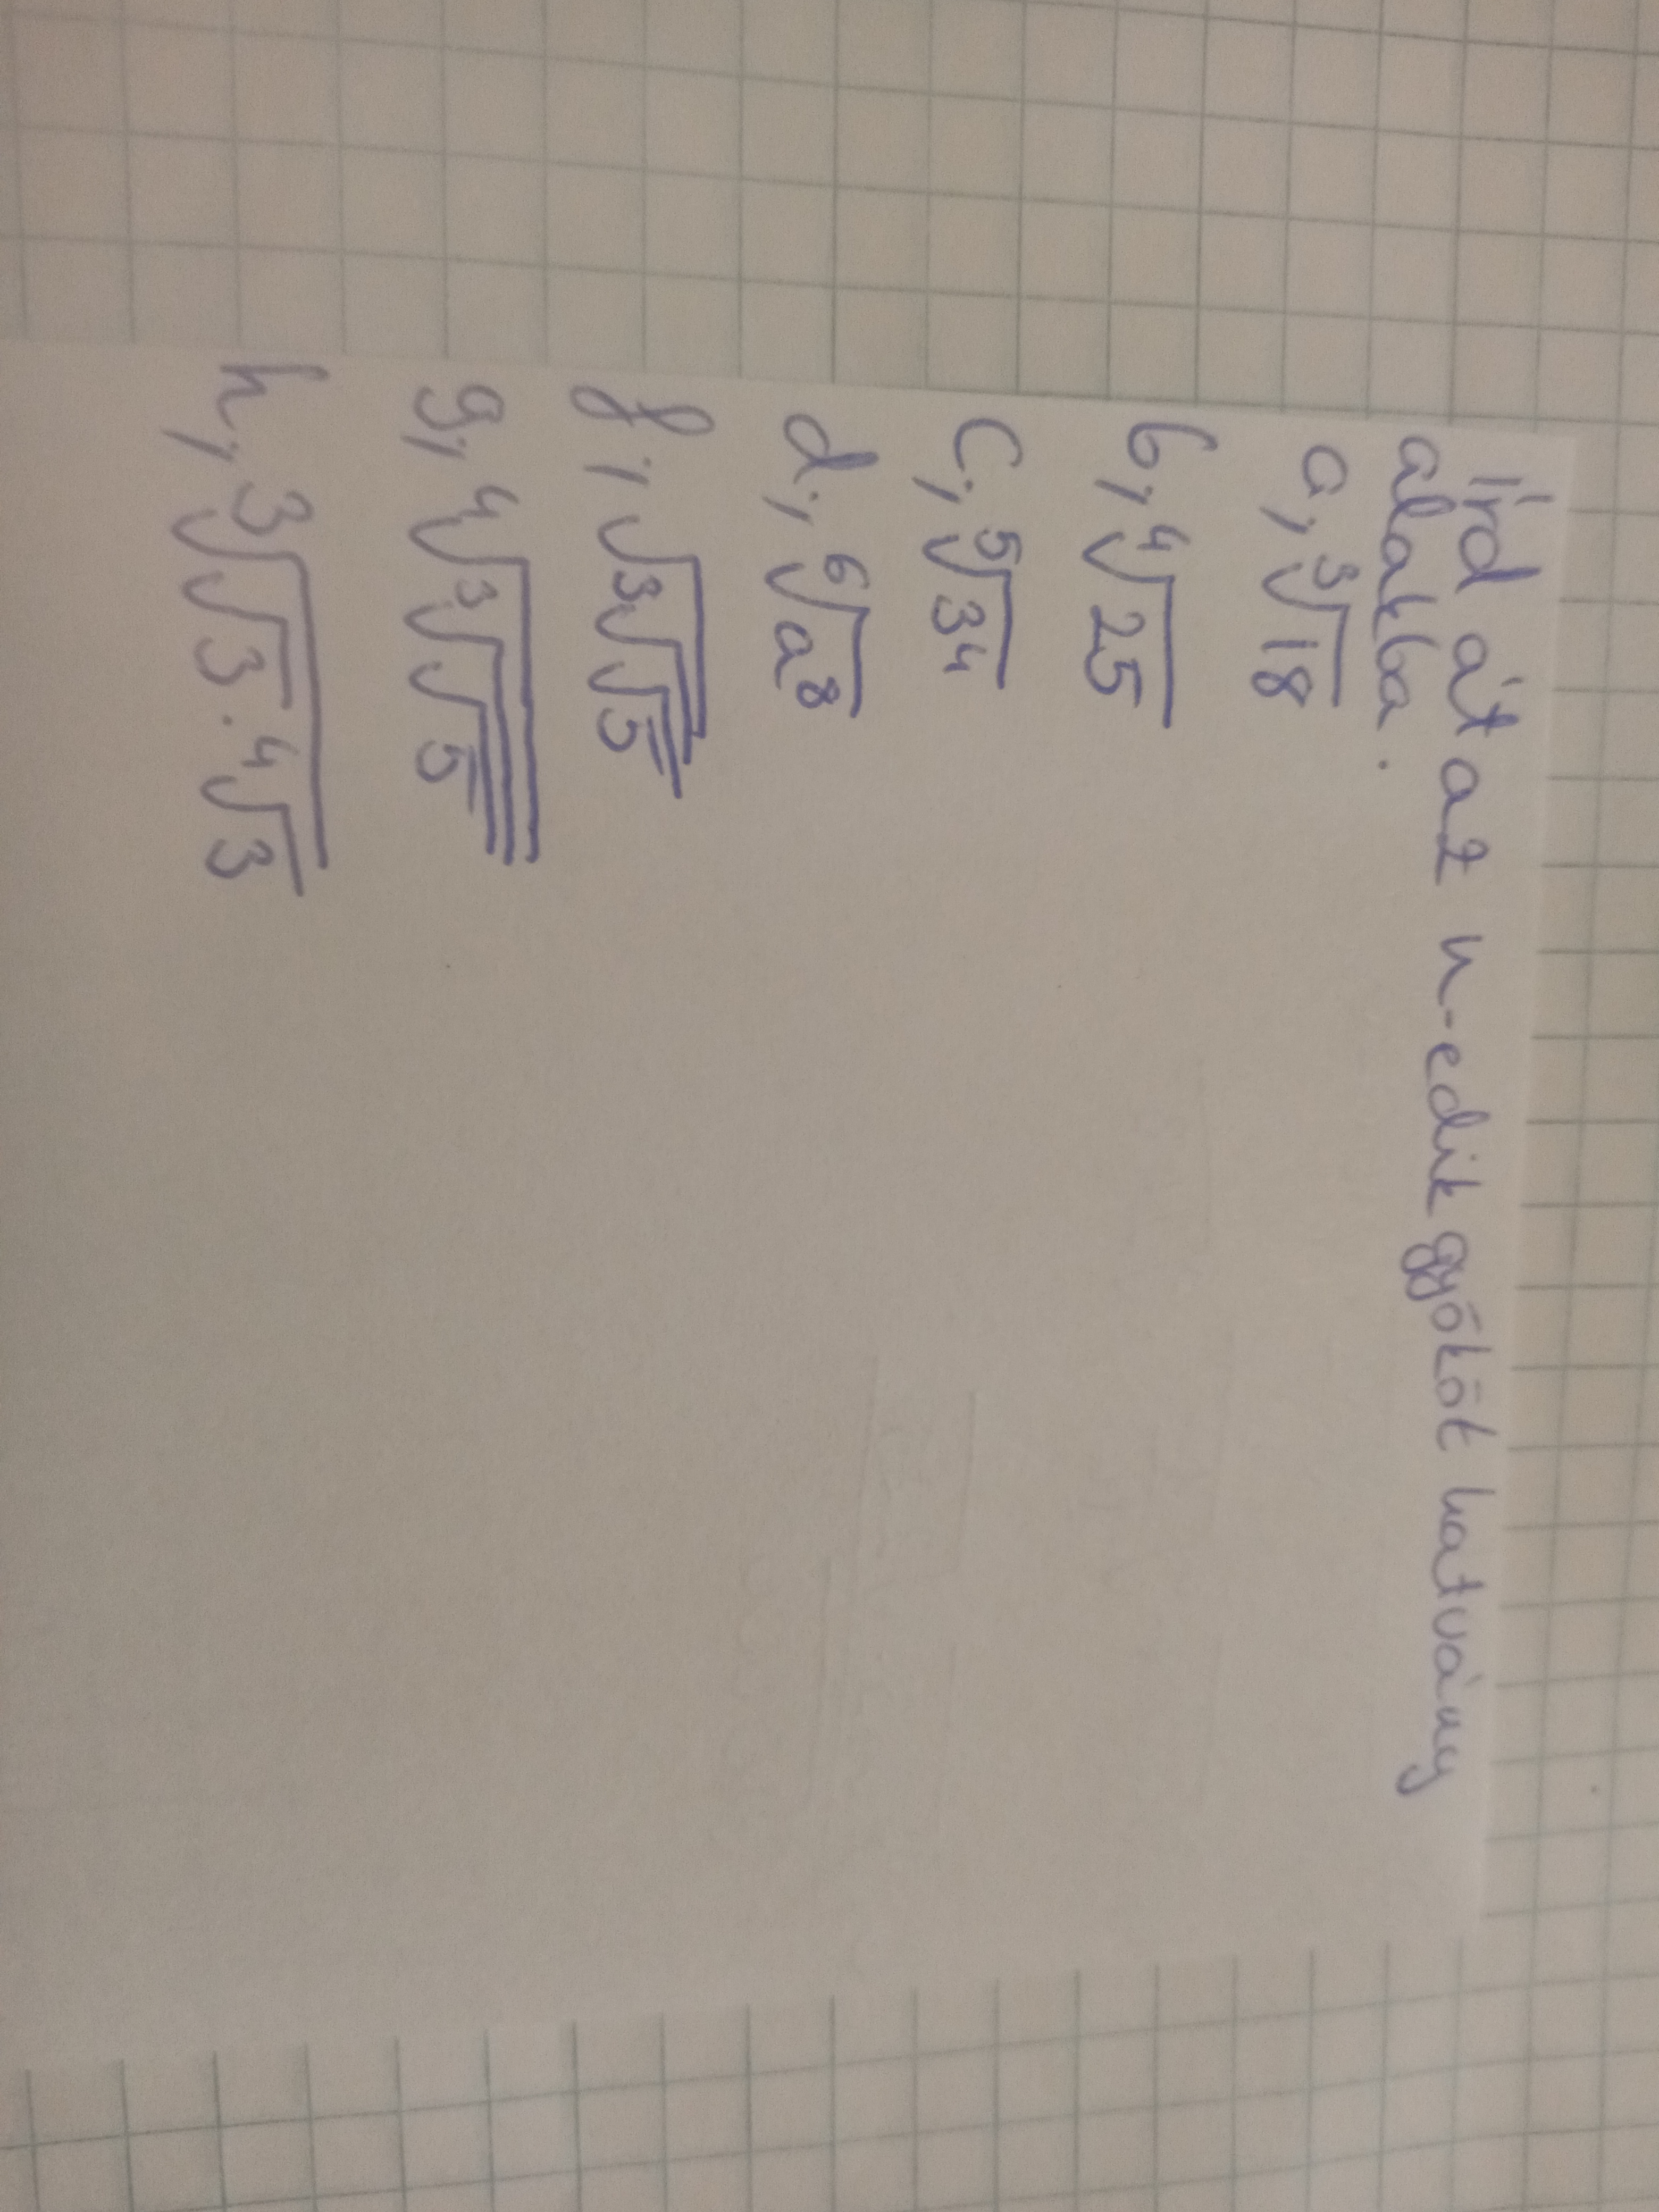 Írd át az n-edik gyököt hatvány
alakba.
a, ∛18
b, ∜25
c, ⁵√3⁴
d, ⁶√a⁸
f, √(∛(√5))
g, ∜(∛(√5))
h, ∛(√3 · ∜3)